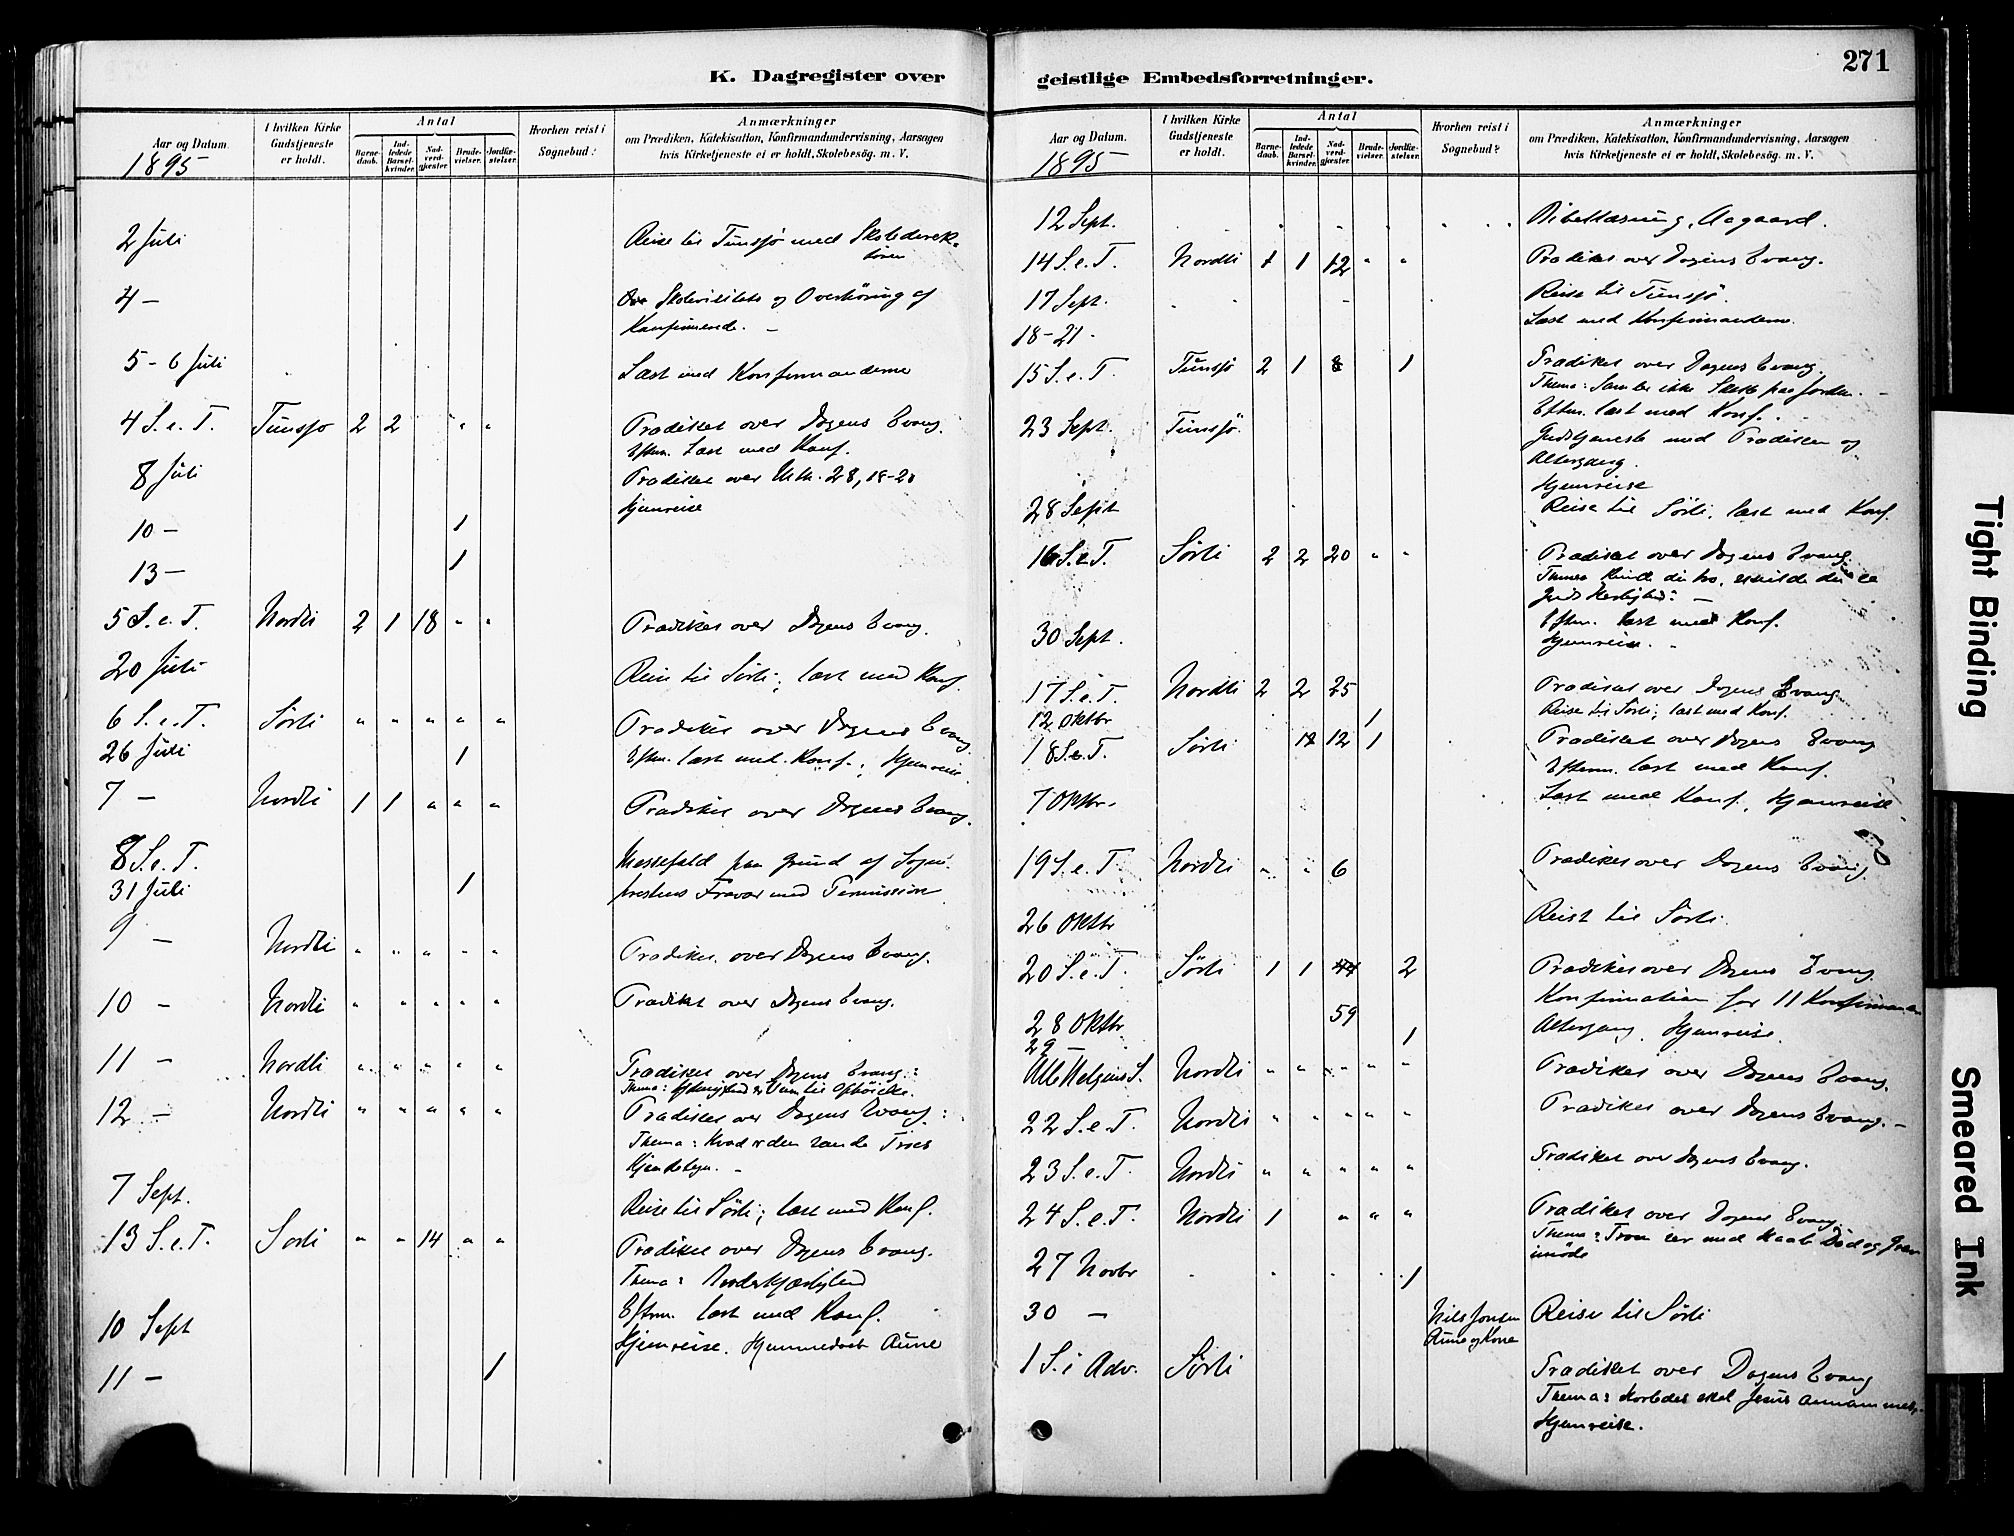 K. Dagregister over
Aar og Datum.
I hvilken Kirke Gudstjeneste er holdt.
Antal
Barnedaab.
Indledede Barselkvinder.
Nadverdgjester.
Brudevielser.
Jordfæstelser.
Hvorhen reist i Sognebud?
Anmærkninger
om Prædiken, Katekisation, Konfirmandundervisning, Aarsagen
hvis Kirketjeneste ei er holdt, Skolebesög. m. V.
1895
2 Juli Reise til Tunsjø med Skoledirek-
tøren
4 - Skolevisitats og Overhøring af
Konfirmende. -
5-6 Juli Læst med Konfirmanderne
4 S. e. T. Tunsjø 2 2 " " Prædiket over Dagens Evang.
Eftm. Læst med Konf.
8 Juli Prædiket over Mth. 28, 18-20
Hjemreise
10 - 1
13 - 1
5 S. e. T. Nordli 2 1 18 " " Prædiket over Dagens Evang.
20 Juli Reise til Sørli; læst med Konf.
6 S. e. T. Sørli " " " " " Prædiket over Dagens Evang.
26 Juli 1 Eftm. læst med Konf.; Hjemreise.
7 - Nordli 1 1 " " " Prædiket over Dagens Evang.
8 S. e. T. Messefald paa Grund af Sogne-
31 Juli 1 prestens Fravær med Permission
9 - Nordli " " " " " Prædiket over Dagens Evang.
10 - Nordli " " " " " Prædiket over Dagens Evang.
11 - Nordli " " " " " Prædiket over Dagens Evang.:
12 - Nordli " " " " " Prædiket over Dagens Evang.:
Thema: Hvad er den sande Troes
Kjendetegn. -
7 Sept. Reise til Sørli; læst med Konf.
13 S. e. T. Sørli " " 14 " " Prædiket over Dagens Evang.
Thema: Broderkjærlighed
Eftm. læst med Konf.
10 Sept Hjemreise. Hjemmedøbt Aune
11 - 1
geistlige Embedsforretninger.
271
Aar og Datum.
I hvilken Kirke Gudstjeneste er holdt.
Antal
Barnedaab.
Indledede Barselkvinder.
Nadverdgjester.
Brudevielser.
Jordfæstelser.
Hvorhen reist i Sognebud?
Anmærkninger
om Prædiken, Katekisation, Konfirmandundervisning, Aarsagen
hvis Kirketjeneste ei er holdt, Skolebesög. m. V.
1895
12 Sept. Bibellæsning, Aagaard.
14 S. e. T. Nordli 1 1 12 " " Prædiket over Dagens Evang.
17 Sept. Reise til Tunsjø.
18-21 - Læst med Konfirmanderne.
15 S. e. T. Tunsjø 2 1 8 1 Prædiket over Dagens Evang.
Thema: Samler ikke Skatte paa Jorden. -
Eftm. læst med Konf.
23 Sept. Tunsjø. Gudstjeneste med Prædiken og
Altergang.
Hjemreise
28 Sept Reise til Sørli, læst med Konf.
16 S. e. T. Sørli 2 2 20 " " Prædiket over Dagens Evang.
Eftm. læst med Konf.
30 Sept. Hjemreise.
17 S. e. T. Nordli 2 2 25 Prædiket over Dagens Evang.
12 Oktbr 1 Reise til Sørli; læst med Konf.
18 S. e. T. Sørli 12 12 1 Prædiket over Dagens Evang
Efterm. læst med Konf.
7 Oktbr. Læst med Konf. Hjemreise
19 S. e. T. Nordli " " 6 Prædiket over Dagens Evang.
26 Oktbr Reist til Sørli
20 S. e. T. Sørli 1 1 44 2 Prædiket over Dagens Evang.
59 Konfirmation for 11 Konfirmander
28 Oktbr Altergang. Hjemreise.
29 - 1
Alle Helgens S. Nordli " " " " " Prædiket over Dagens Evang.
22 S. e. T. Nordli " " " " " Prædiket over Dagens Evang. -
23 S. e. T. Nordli " " " " " Prædiket over Dagens Evang.
24 S. e. T. Nordli 1 " " " Prædiket over Dagens Evang.
Thema: Troen ser med Haab Død og Grav
imøde
27 Novbr 1
30 - Nils Jonsen Reise til Sørli
Aune og Kone
1 S. i Adv. Sørli Prædiket over Dagens Evang
Thema: Hvorledes skal Jesus annammes.
Hjemreise.
Tight Binding
Smeared Ink